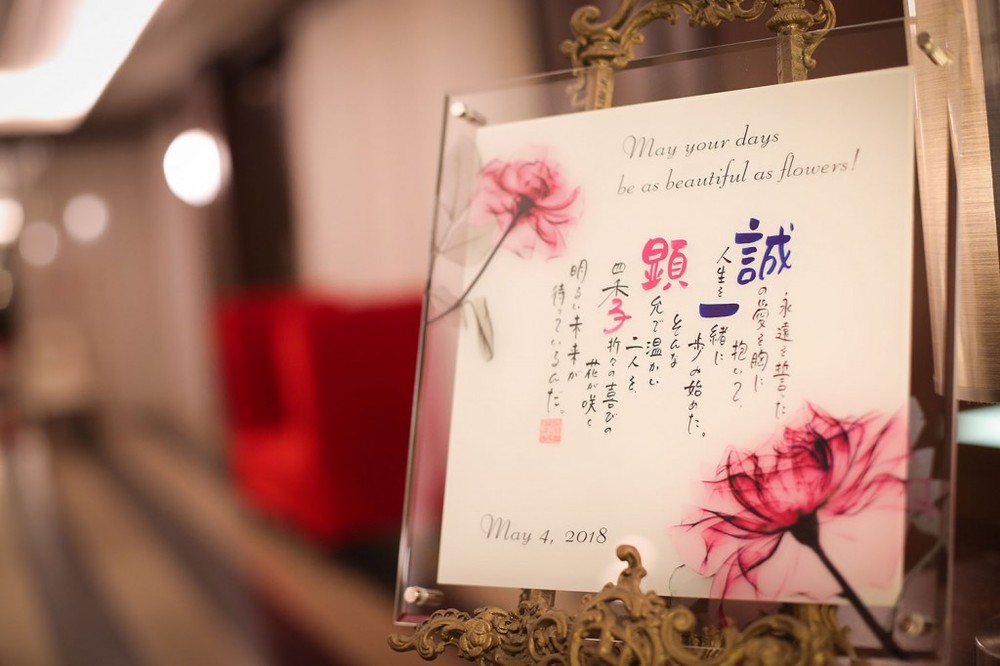 May your days
be as beautiful as flowers!
永遠を誓った
誠の愛を胸に
抱いて、
人生を一緒に
歩み始めた。
そんな
顕允で温かい
二人を、
四季折々の喜びの
花が咲く
明るい未来が
待っているんだ。
May 4, 2018